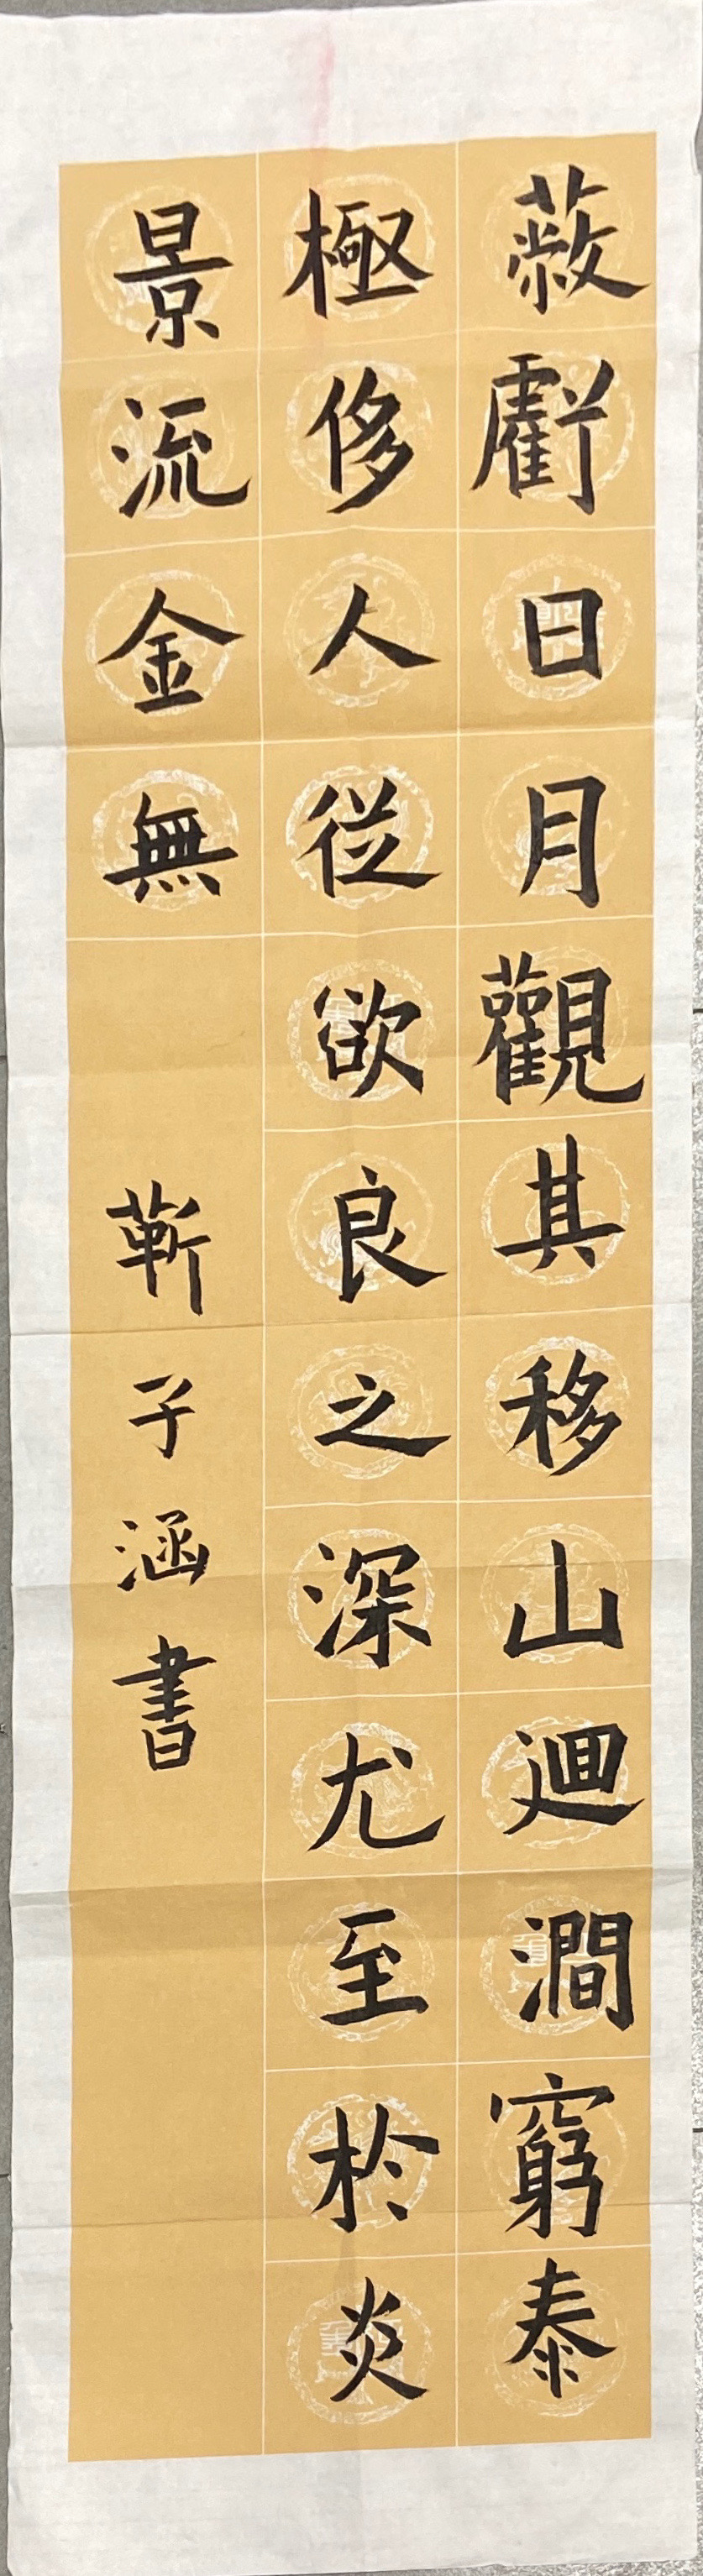 蔽虧日月觀其移山廻澗窮泰
極侈人從欲良之深尤至於炎
景流金無
靳子涵書